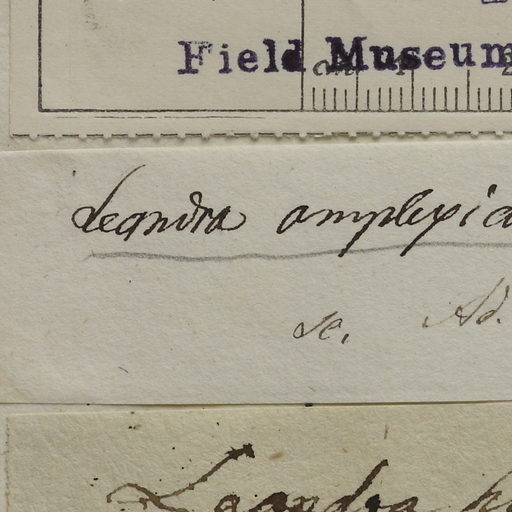 Field Museum
cm 1
Leandra amplexica
sc. Ad.
Leandra